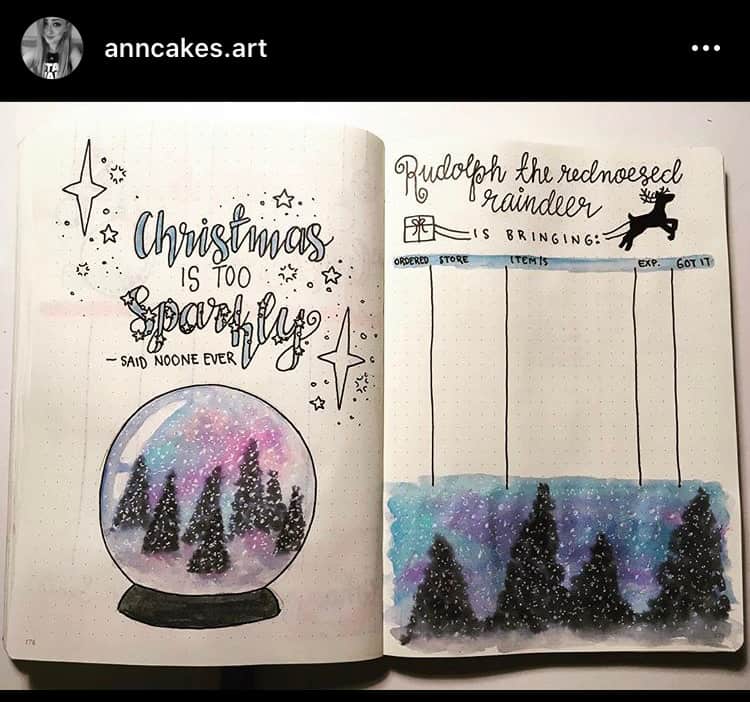 anncakes.art
Christmas
IS TOO
Sparkly
~ SAID NOONE EVER
176
Rudolph the rednoesed
raindeer
IS BRINGING:
ORDERED STORE ITEMS EXP. GOT IT